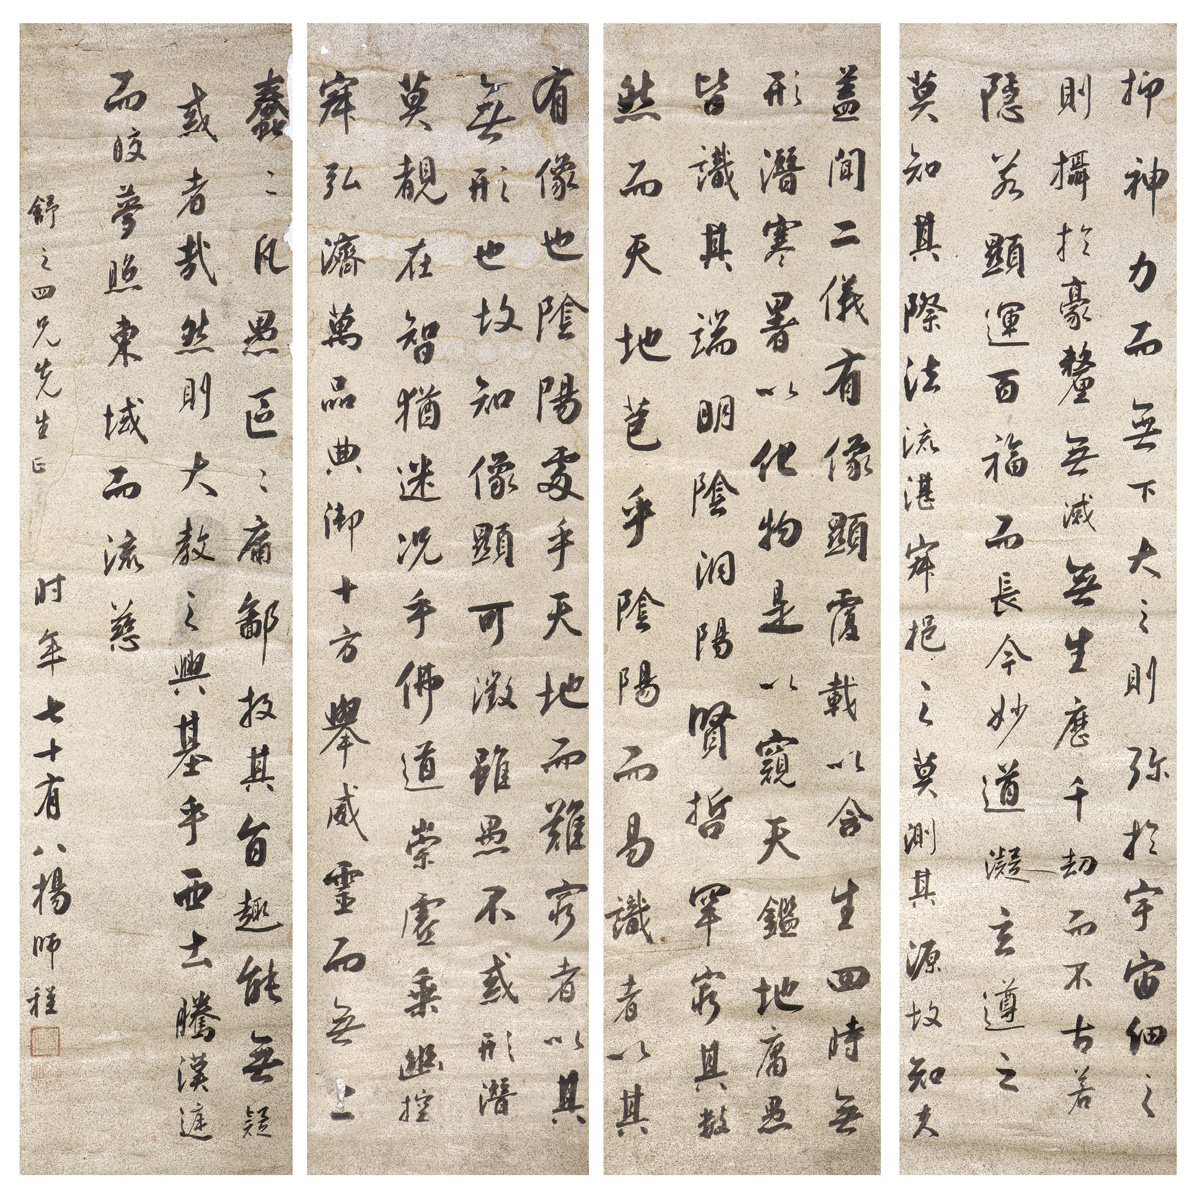 抑神力而無下大之則弥於宇宙細之
則攝於豪釐無滅無生歷千劫而不古若
隱若顯運百福而長今妙道凝玄遵之
莫知其際法流湛寂挹之莫測其源故知夫
盖聞二儀有像顯覆載以含生四時無
形潛寒暑以化物是以窺天鑑地庸愚
皆識其端明陰洞陽賢哲罕窮其數
然而天地苞乎陰陽而易識者以其
有像也陰陽處乎天地而難窮者以其
無形也故知像顯可徵雖愚不惑形潛
莫覩在智猶迷況乎佛道崇虛乘幽控
寂弘濟萬品典御十方舉威靈而無上
蠢〻凡愚區〻庸鄙投其旨趣能無疑
惑者哉然則大教之興基乎西土騰漢庭
而皎夢照東域而流慈
舒之四兄先生正
时年七十有八楊師程